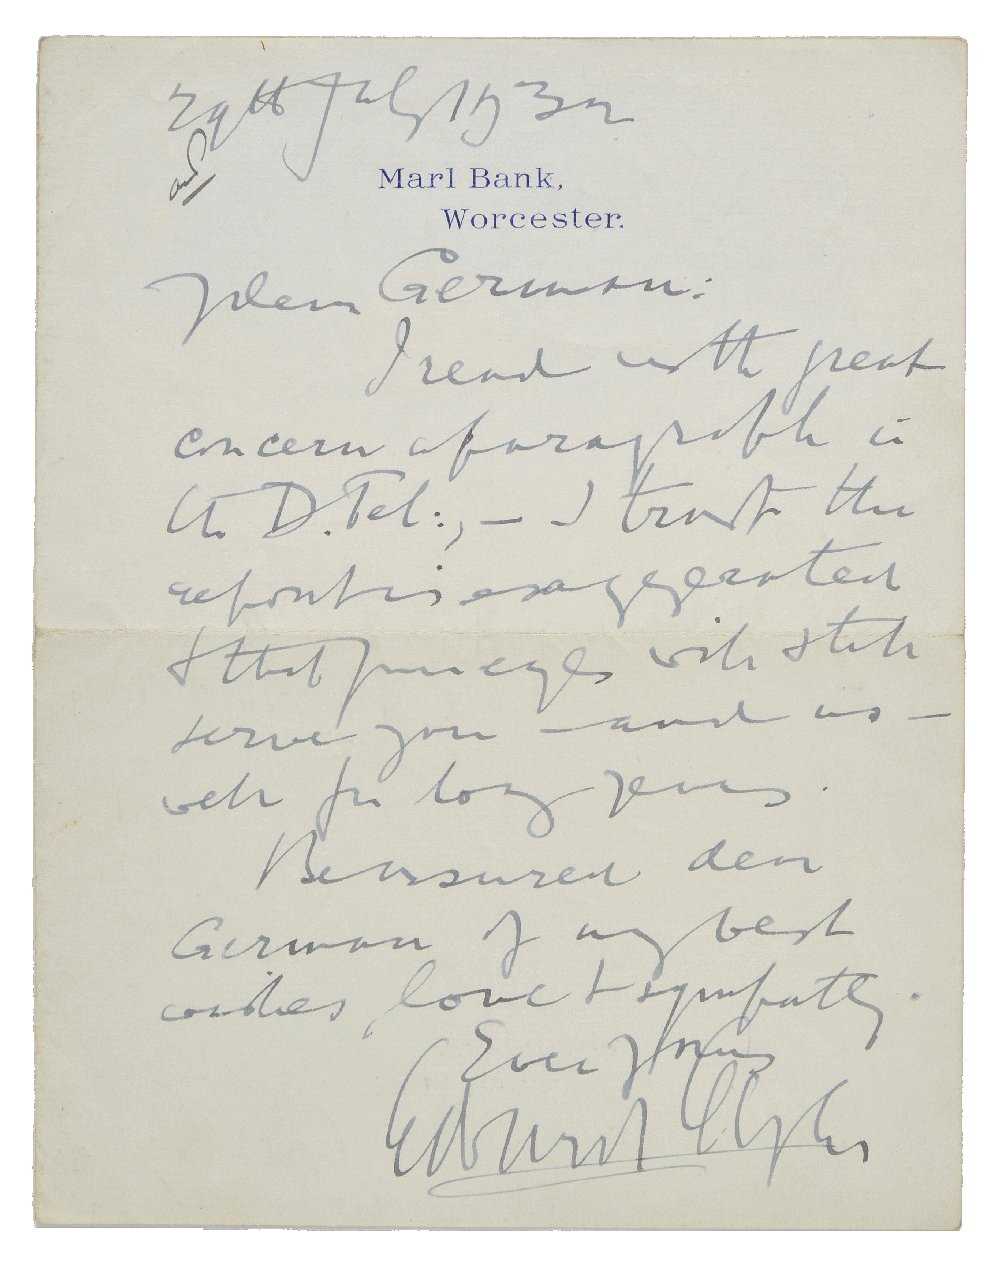 29th July 1932
ansd
Marl Bank,
Worcester.
My dear German:
I read with great
concern a paragraph in
the D. Tel:, — I trust the
report is exaggerated
& that your eyes will still
serve you — and us —
well for long years.
Be assured dear
German of my best
wishes, love & sympathy.
Ever yours
Edward Elgar